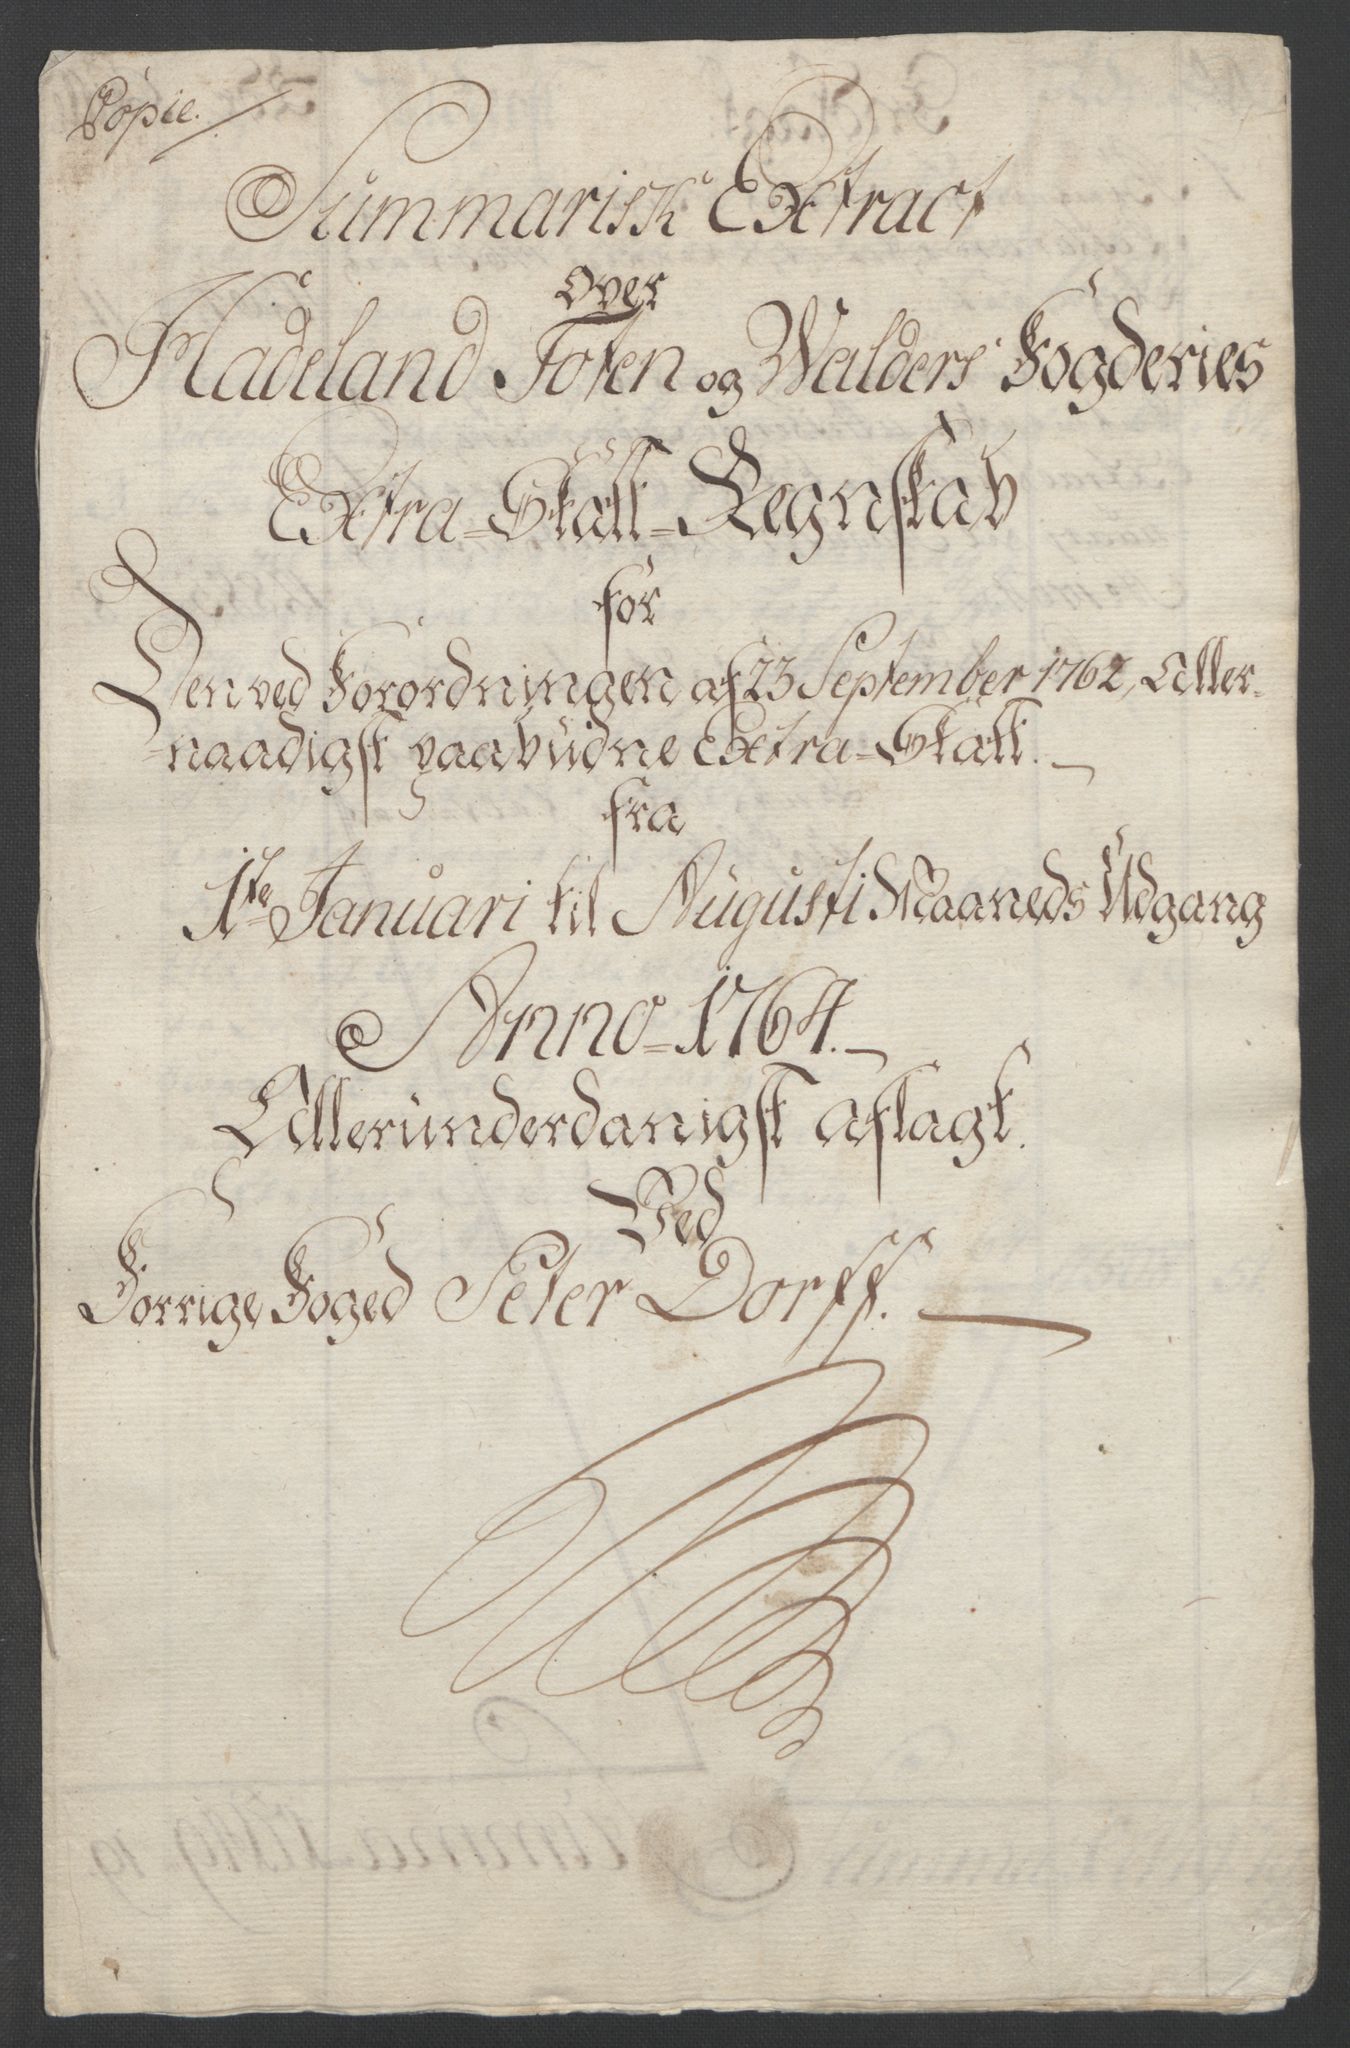 Copie.
Summarisk Extract
Over
Hadeland Toten og Walders Fogderies
Extra-Skatt-Regnskab
for
Den ved Forordningen af 23 September 1762, Aller-
naadigst paabudne Extra-Skatt.
fra
1te Januari til Augusti Maaneds Udgang
Anno-1764.
Allerunderdanigst aflagt.
Ved
Forrige Foged Peter Dorff.